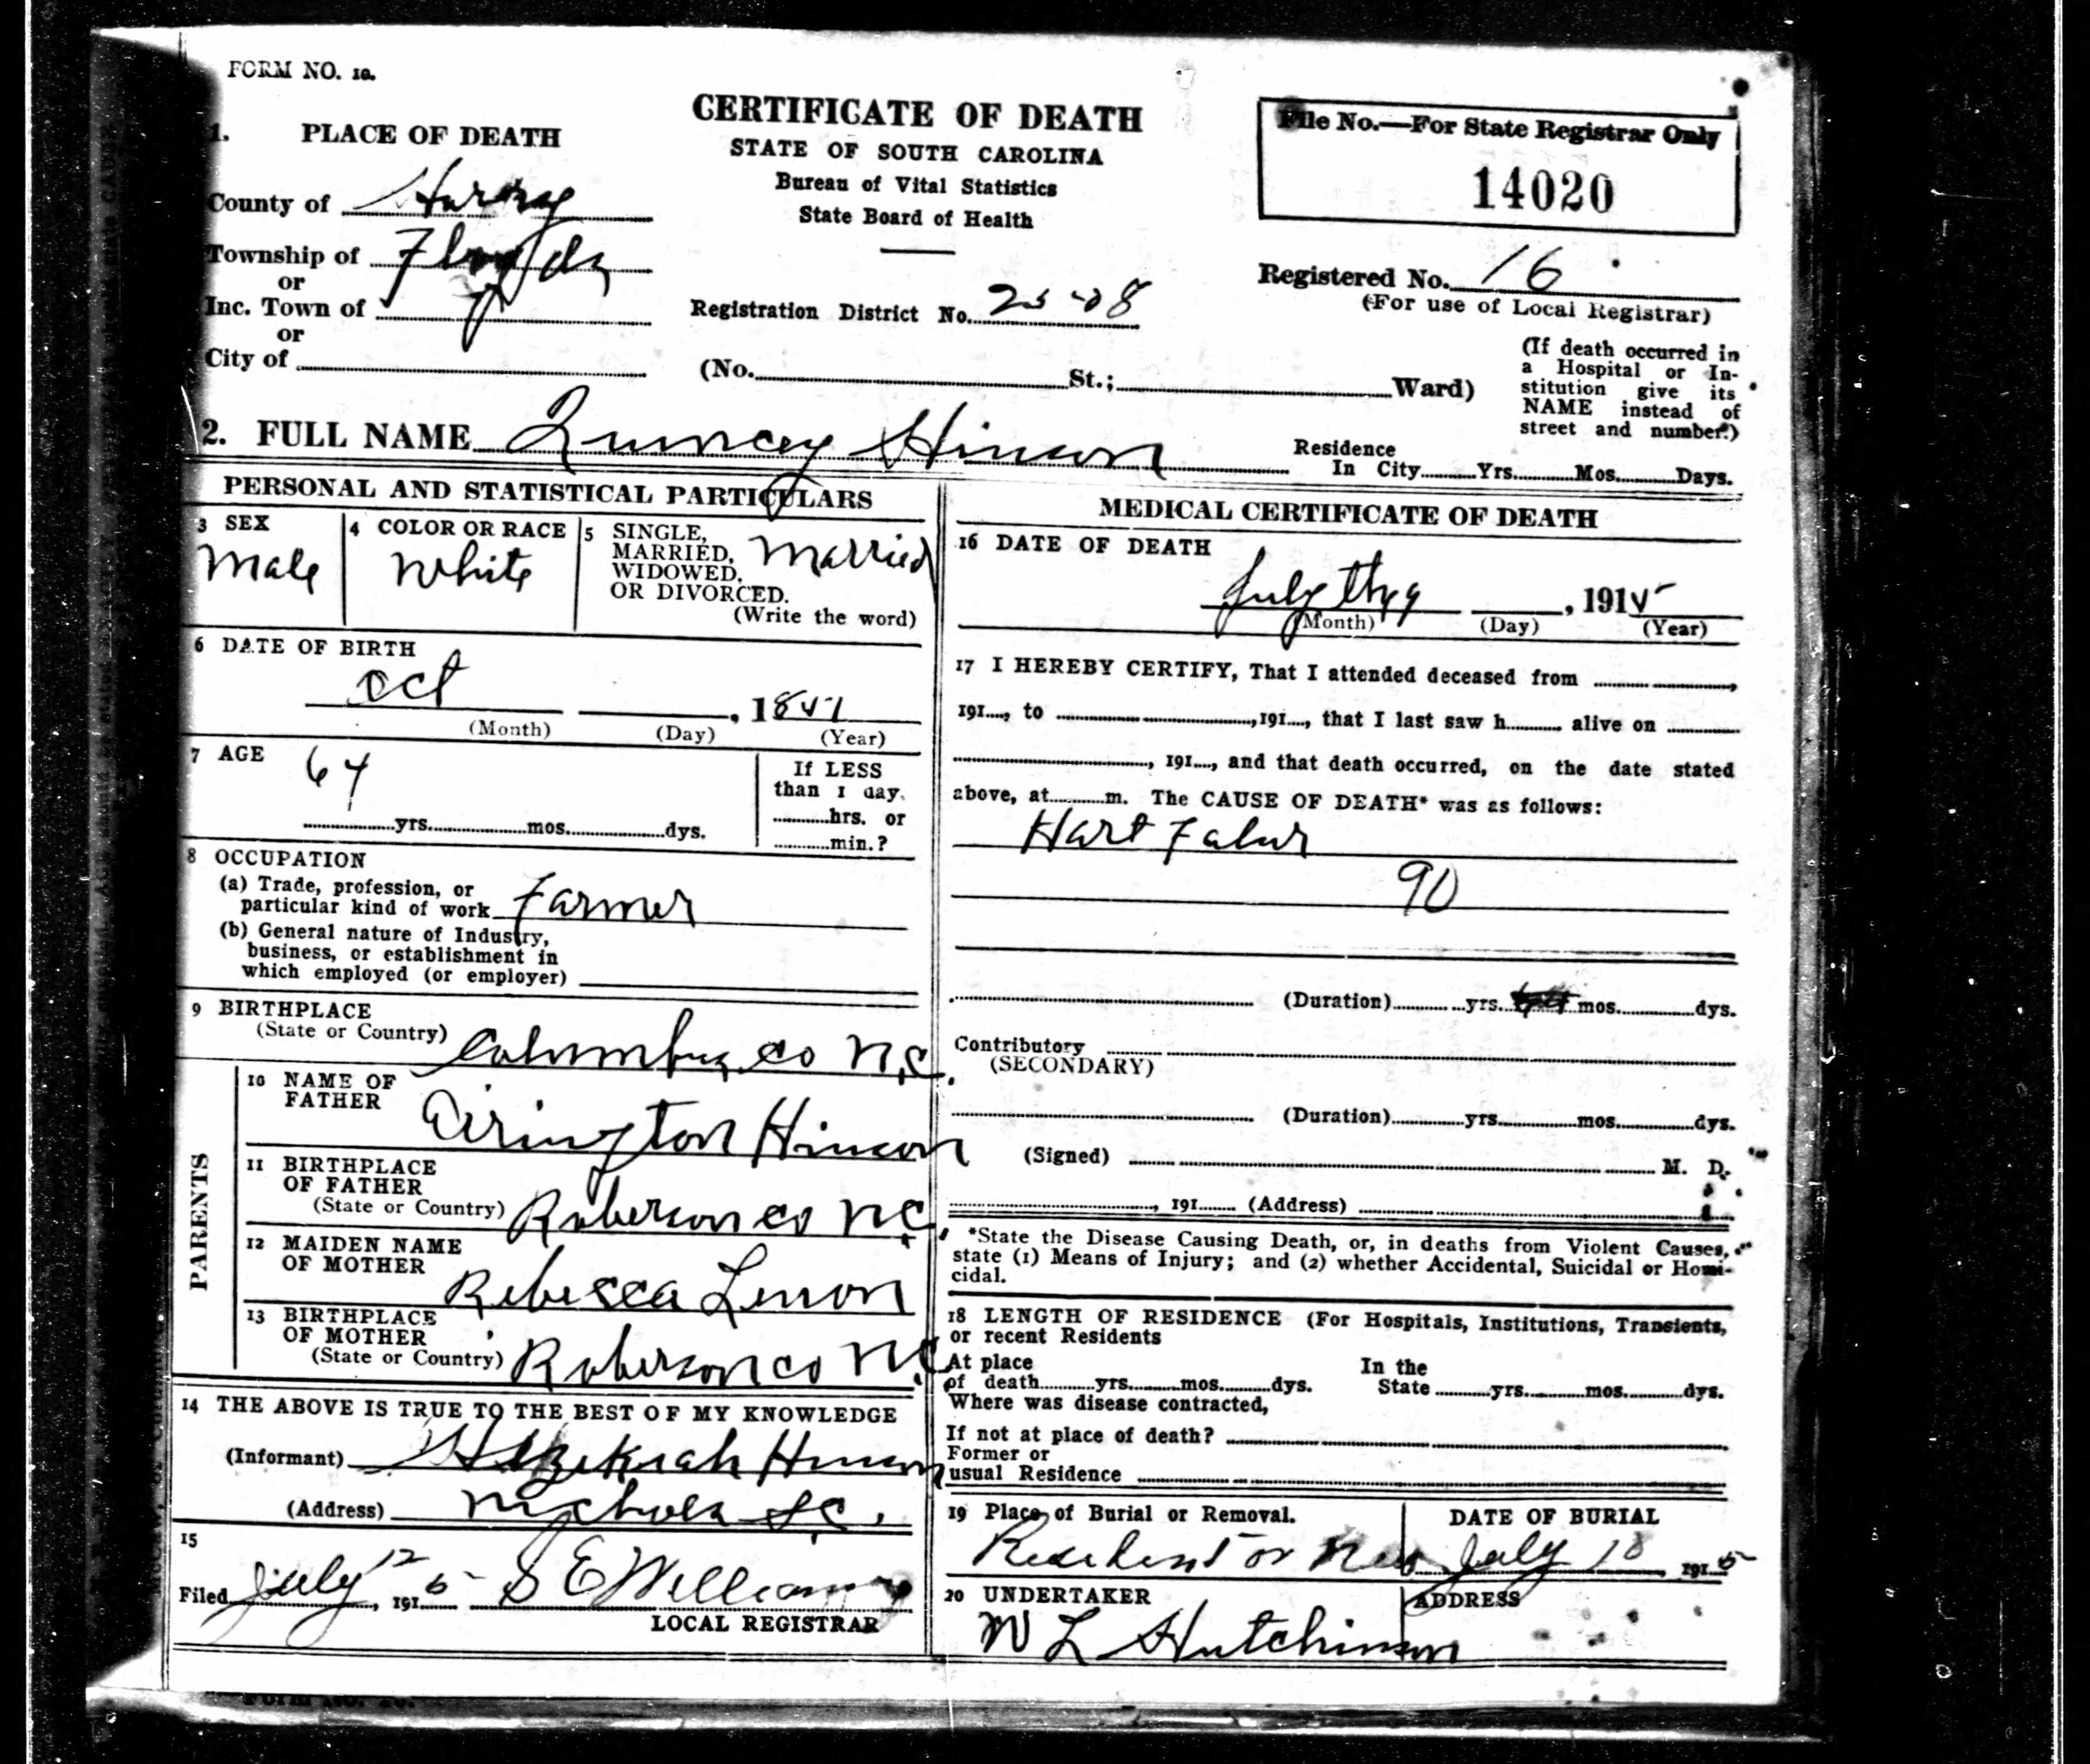 FORM NO. 10.
CERTIFICATE OF DEATH
STATE OF SOUTH CAROLINA
Bureau of Vital Statistics
State Board of Health
File No.—For State Registrar Only
14020
1. PLACE OF DEATH
County of Horry
Township of Floyds
or
Inc. Town of
or
City of
Registration District No. 25-08
Registered No. 16
(For use of Local Registrar)
(No. St.; Ward)
(If death occurred in
a Hospital or In-
stitution give its
NAME instead of
street and number.)
2. FULL NAME Quincey Hinson
Residence
In City Yrs. Mos. Days.
PERSONAL AND STATISTICAL PARTICULARS
3 SEX
Male
4 COLOR OR RACE
White
5 SINGLE,
MARRIED,
WIDOWED,
OR DIVORCED.
(Write the word)
Married
6 DATE OF BIRTH
Oct , 1851
(Month) (Day) (Year)
7 AGE
64
yrs. mos. dys.
If LESS
than 1 day,
hrs. or
min.?
8 OCCUPATION
(a) Trade, profession, or
particular kind of work Farmer
(b) General nature of Industry,
business, or establishment in
which employed (or employer)
9 BIRTHPLACE
(State or Country) Columbus co N.C.
PARENTS
10 NAME OF
FATHER
Arington Hinson
11 BIRTHPLACE
OF FATHER
(State or Country) Roberson co N.C.
12 MAIDEN NAME
OF MOTHER
Rebecca Lenon
13 BIRTHPLACE
OF MOTHER
(State or Country) Roberson co N.C
14 THE ABOVE IS TRUE TO THE BEST OF MY KNOWLEDGE
(Informant) Hezekiah Hinson
(Address) Nichols S.C.
15
Filed July 12, 1915 S E Williams
LOCAL REGISTRAR
MEDICAL CERTIFICATE OF DEATH
16 DATE OF DEATH
July the 9 , 1915
(Month) (Day) (Year)
17 I HEREBY CERTIFY, That I attended deceased from ,
191 , to ,191 , that I last saw h alive on
, 191 , and that death occurred, on the date stated
above, at m. The CAUSE OF DEATH* was as follows:
Hart Falur
90
(Duration) yrs. mos. dys.
Contributory
(SECONDARY)
(Duration) yrs. mos. dys.
(Signed) M. D.
, 191 (Address)
*State the Disease Causing Death, or, in deaths from Violent Causes,
state (1) Means of Injury; and (2) whether Accidental, Suicidal or Homi-
cidal.
18 LENGTH OF RESIDENCE (For Hospitals, Institutions, Transients,
or recent Residents
At place
of death yrs. mos. dys.
In the
State yrs. mos. dys.
Where was disease contracted,
If not at place of death?
Former or
usual Residence
19 Place of Burial or Removal.
or
DATE OF BURIAL
July 10, 1915
20 UNDERTAKER
W L Hutchinson
ADDRESS